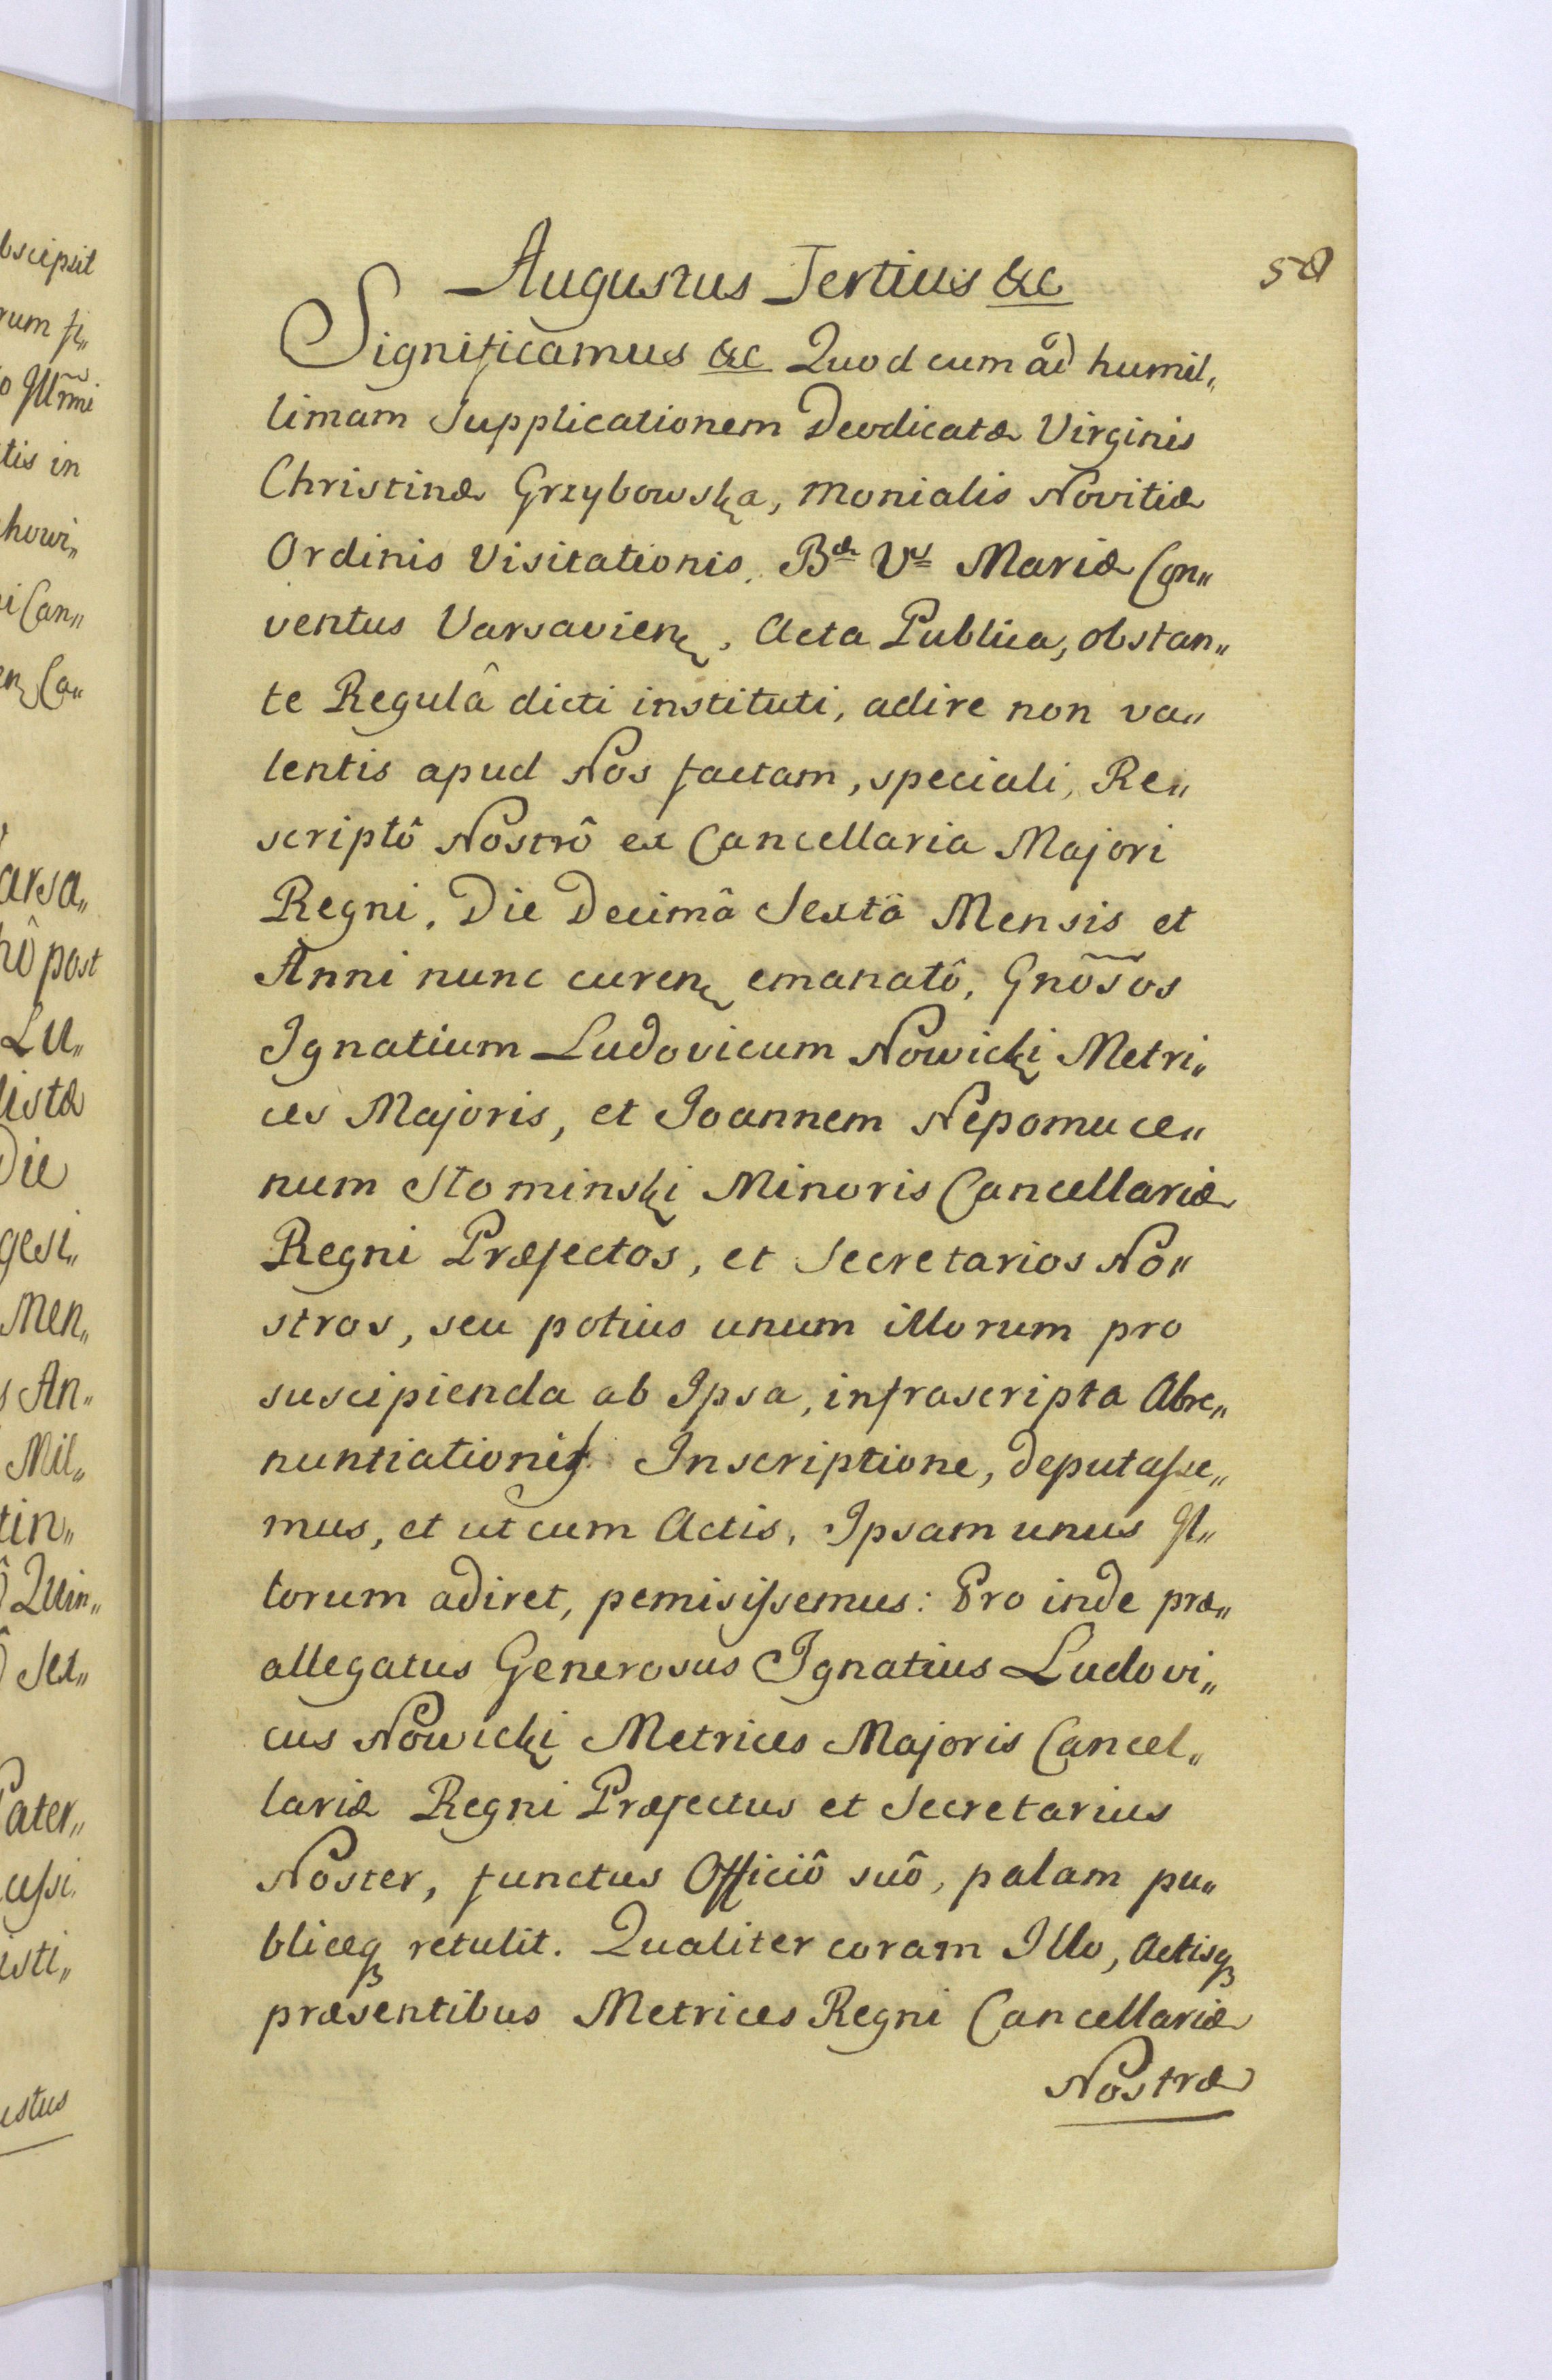 58
Augustus Tertius &c
Significamus &c Quod cum ad humil„
limam Supplicationem Deodicatæ Virginis
Christinæ Grzybowska, Monialis Novitiæ
Ordinis Visitationis Bæ Vs Mariæ Con„
ventus Varsavien, Acta Publica, obstan„
te Regulâ dicti instituti, adire non va„
lentis apud Nos factam, speciali, Re„
scriptô Nostrô ex Cancellaria Majori
Regni, Die Decimâ Sextâ Mensis et
Anni nunc curen emanatô, Gnõsos
Ignatium Ludovicum Nowicki Metri„
ces Majoris, et Joannem Nepomuce„
num Słominski Minoris Cancellariæ
Regni Præfectos, et Secretarios No„
stros, seu potius unum illorum pro
suscipienda ab Ipsa, infrascripta Abre„
nuntiationis Inscriptione, deputasse„
mus, et ut cum Actis, Ipsam unus Il„
lorum adiret, pemisissemus: Pro inde præ„
allegatus Generosus Ignatius Ludovi„
cus Nowicki Metrices Majoris Cancel„
lariæ Regni Præfectus et Secretarius
Noster, functus Officiô suô, palam pu„
bliceq retulit. Qualiter coram Illo, Actisq
præsentibus Metrices Regni Cancellariæ
Nostræ